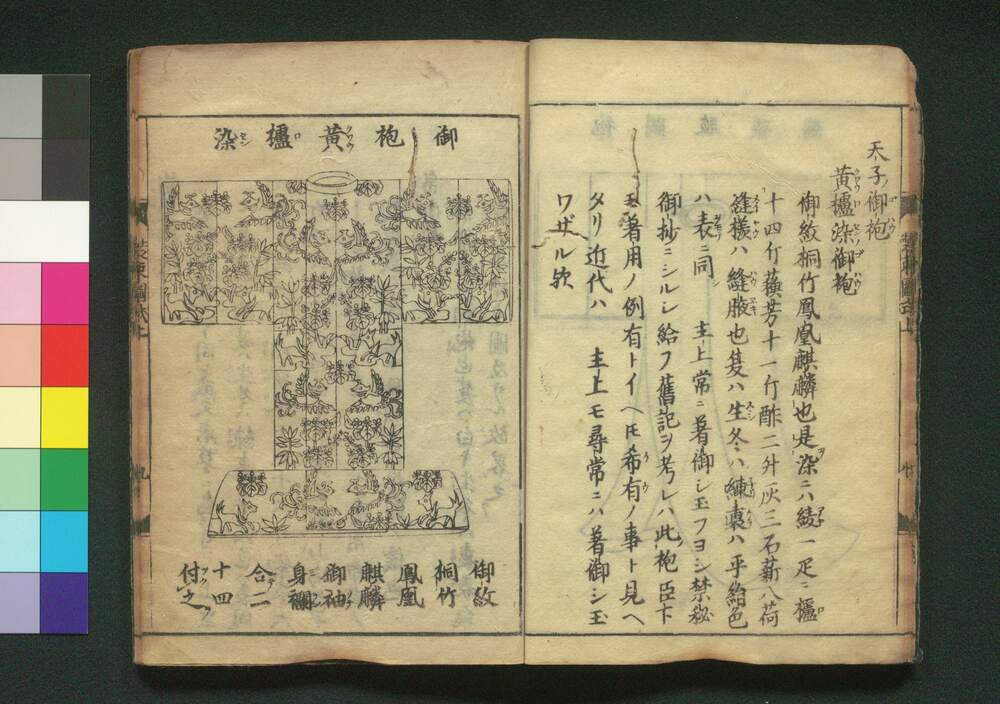 天子ノ御袍
黄櫨染御袍
御紋桐竹鳳凰麒麟也是ヲ染ニハ綾一疋ニ櫨
十四斤蘓芳十一斤酢二升灰三石薪八荷
縫樣ハ縫腋也隻ハ生冬ハ練裏ハ平絹色
ハ表ニ同シ 主上常ニ著御シ玉フヨシ禁秘
御抄ニシルシ給フ舊記ヲ考レハ此袍臣下
モ著用ノ例有トイヘ𪜈希有ノ事ト見ヘ
タリ近代ハ 主上モ尋常ニハ著御シ玉
ワザル欤
御袍黄櫨染
御紋
桐竹
鳳凰
麒麟
御袖
身襴
合二
十四
付之